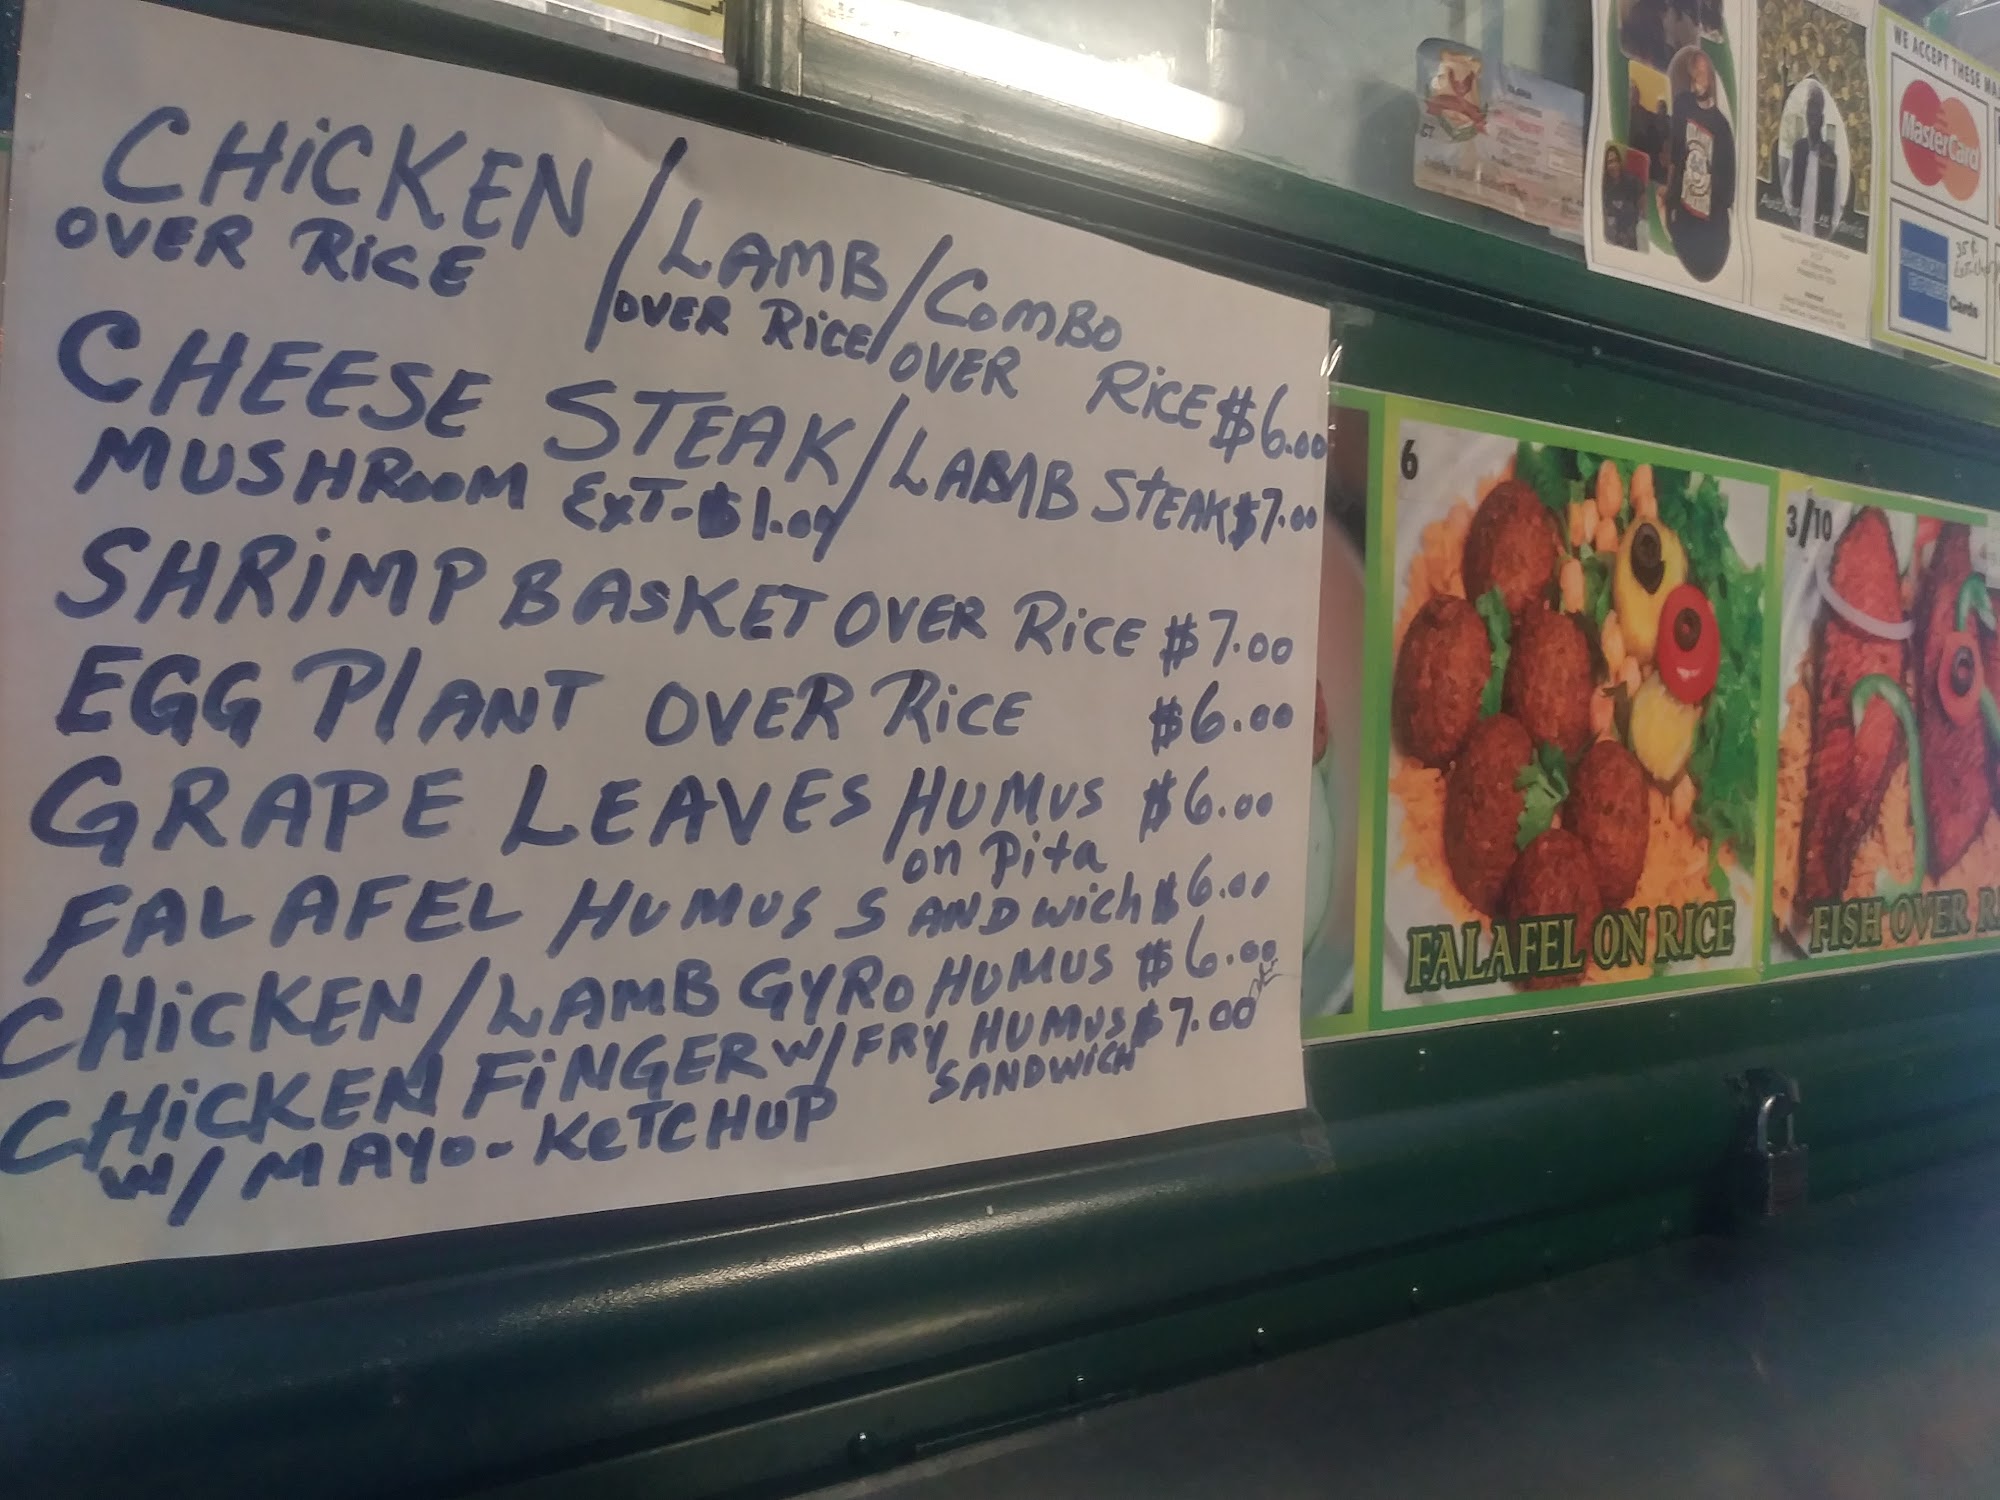 CHiCKEN / LAMB / COMBO
OVER RiCE / OVER RiCE / OVER RiCE $6.00
CHEESE STEAK / LAMB STEAK $7.00
MUSHROOM EXT-$1.00
SHRiMP BASKET OVER RiCE $7.00
EGG PlANT OVER RiCE $6.00
GRAPE LEAVES / HUMUS $6.00
on Pita
FALAFEL HUMUS SANDwich $6.00
CHiCKEN / LAMB GYRO HUMUS $6.00
CHiCKEN FiNGER W/ FRY HUMUS $7.00
SANDWiCH
W/ MAYO-KeTCHUP
WE ACCEPT THESE MA
MasterCard
AMERICAN EXPRESS
35¢
Cards
6
FALAFEL ON RICE
3/10
FISH OVER R